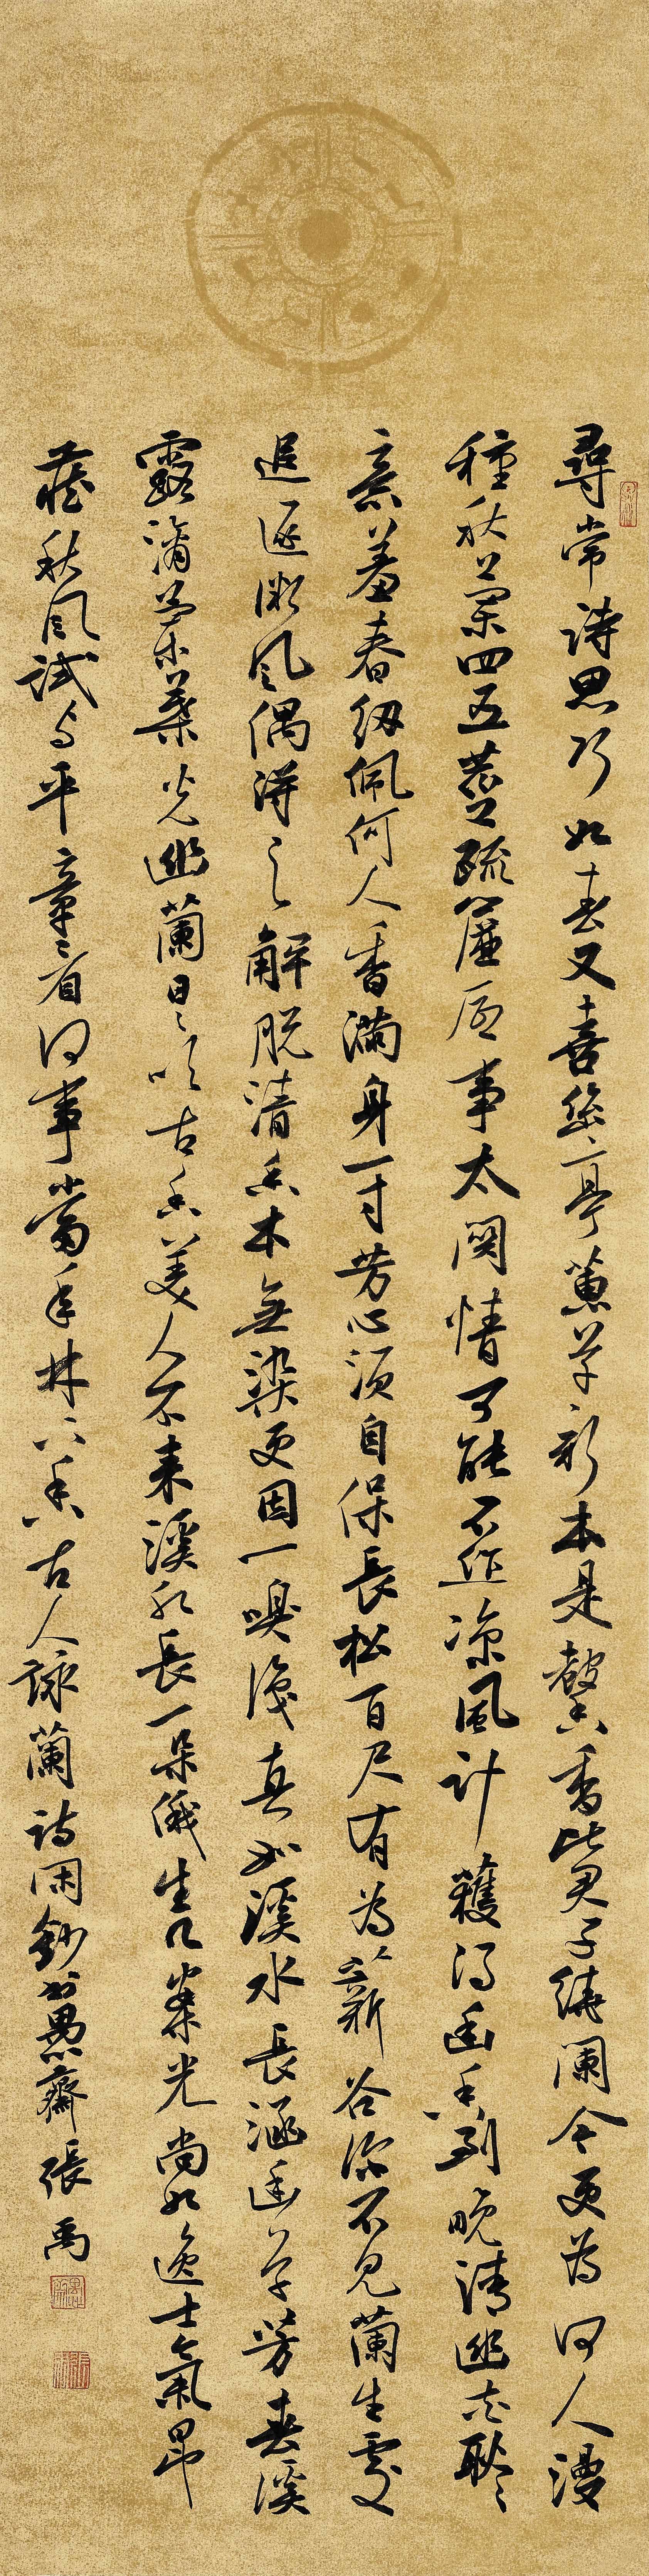 尋常詩思巧如春又喜幽亭蕙草新本是馨香比君子繞闌今更為何人漫
種秋蘭四五莖疏簾底事太關情可能不作涼風計護得幽香到晚清幽谷耿〻
意羞春紉佩何人香滿身一寸芳心須自保長松百尺有為薪谷深不見蘭生處
追逐微風偶得之解脫清香本無染更因一嗅識真如溪水長涵幽草芳春溪
露滴蘭葉光幽蘭日〻吹古香美人不來溪水長一朵俄生几案光尚如逸士氣昂
藏秋風試與平章看何事當年林下香古人詠蘭詩閑鈔於愚齋張禹